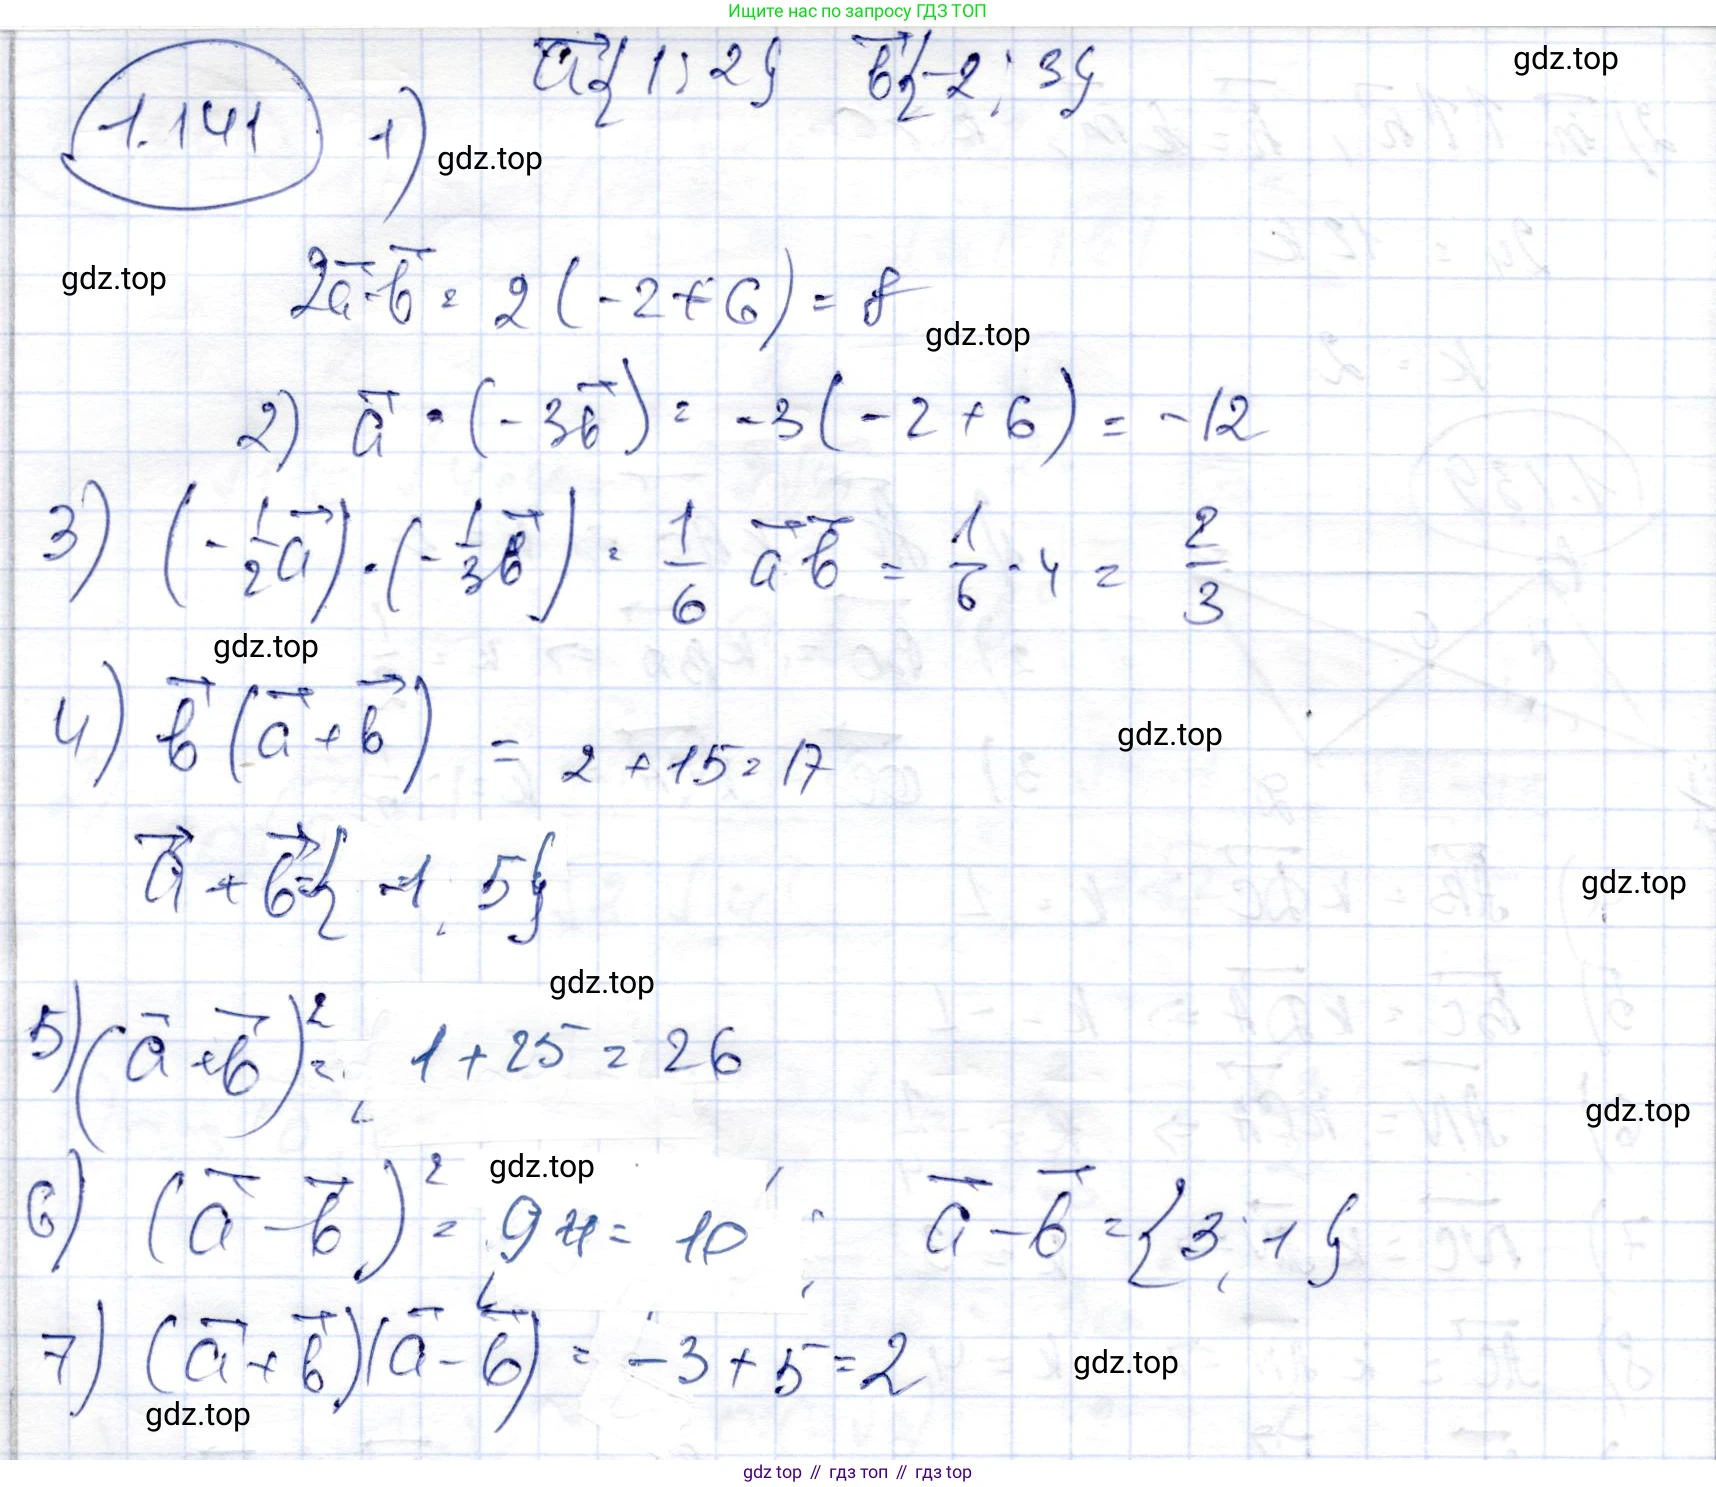 Ищите нас по запросу ГДЗ ТОП
a⃗{1; 2} b⃗{-2; 3}
gdz.top
1.141 1)
gdz.top
gdz.top
2a⃗·b⃗ = 2(-2+6) = 8
gdz.top
2) a⃗ · (-3b⃗) = -3(-2+6) = -12
3) (-1/2 a⃗)·(-1/3 b⃗) = 1/6 a⃗ b⃗ = 1/6 · 4 = 2/3
gdz.top
4) b⃗(a⃗+b⃗) = 2+15=17
gdz.top
a⃗+b⃗={-1; 5}
gdz.top
gdz.top
5) (a⃗+b⃗)² = 1+25=26
gdz.top
gdz.top
6) (a⃗-b⃗)² = 9+1= 10 ; a⃗-b⃗={3; -1}
7) (a⃗+b⃗)(a⃗-b⃗) = -3+5=2
gdz.top
gdz.top
gdz top // гдз топ // gdz top